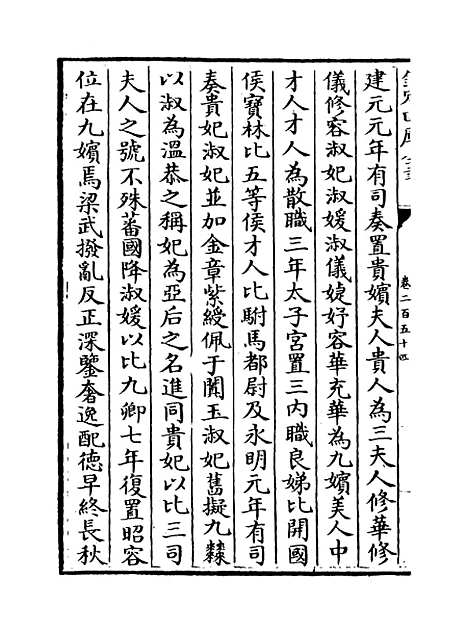 欽定四庫全書
卷二百五十四
建元元年有司奏置貴嬪夫人貴人為三夫人修華修
儀修容淑妃淑媛淑儀婕妤容華充華為九嬪美人中
才人才人為散職三年太子宮置三内職良娣比開國
侯寶林比五等侯才人比駙馬都尉及永明元年有司
奏貴妃淑妃並加金章紫綬佩于闐玉淑妃舊擬九𣗥
以淑為溫恭之稱妃為亞后之名進同貴妃以比三司
夫人之號不殊蕃國降淑媛以比九卿七年復置昭容
位在九嬪焉梁武撥亂反正深鑒奢逸配德早終長秋